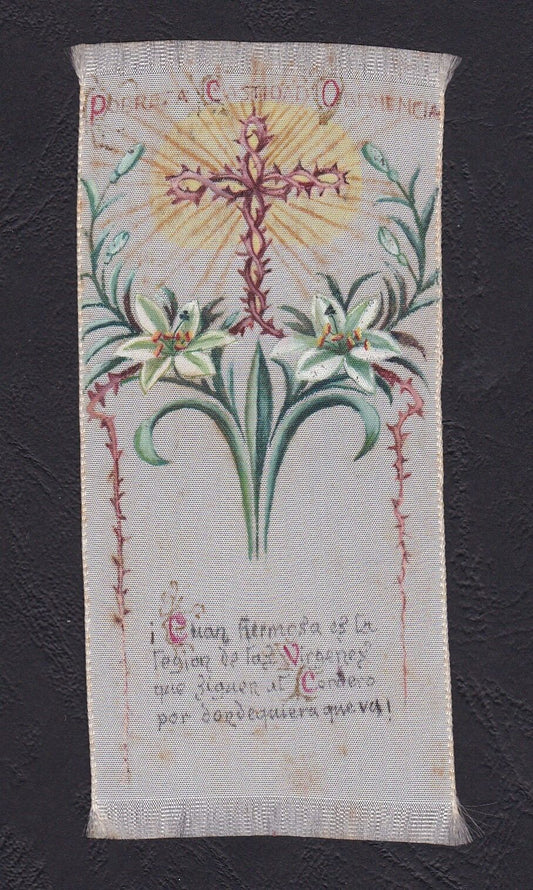 Pobreza Castidad Obediencia
¡Cuan hermosa es la
legion de las Virgenes
que siguen al Cordero
por dondequiera que va!